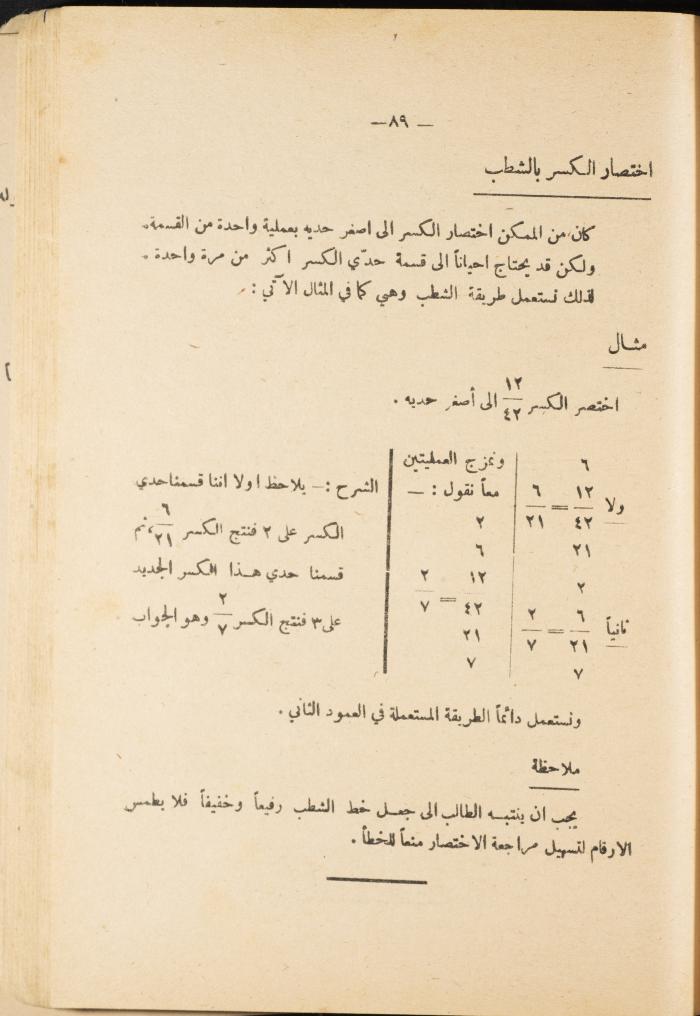 — ٨٩ —
اختصار الكسر بالشطب
كان من الممكن اختصار الكسر الى اصغر حديه بعملية واحدة من القسمة.
ولكن قد يحتاج احياناً الى قسمة حدّي الكسر اكثر من مرة واحدة .
لذلك نستعمل طريقة الشطب وهي كما في المثال الآتي :
مثـال
اختصر الكسر ١٢/٤٢ الى أصغر حديه .
٦
ولا ١٢/٤٢ = ٦/٢١
٢١
٢
ثانياً ٦/٢١ = ٢/٧
٧
ونمزج العمليتين
معاً نقول : —
٢
٦
١٢/٤٢ = ٢/٧
٢١
٧
الشرح :– يلاحظ اولا اننا قسمنا حدي
الكسر على ٢ فنتج الكسر ٦/٢١، ثم
قسمنا حدي هـذا الكسر الجديد
على ٣ فنتج الكسر ٢/٧ وهو الجواب
ونستعمل دائماً الطريقة المستعملة في العمود الثاني .
ملاحظة
يجب ان ينتبـه الطالب الى جعـل خط الشطب رفيعاً وخفيفاً فلا يطمس
الارقام لتسهيل مراجعة الاختصار منعاً للخطأ .